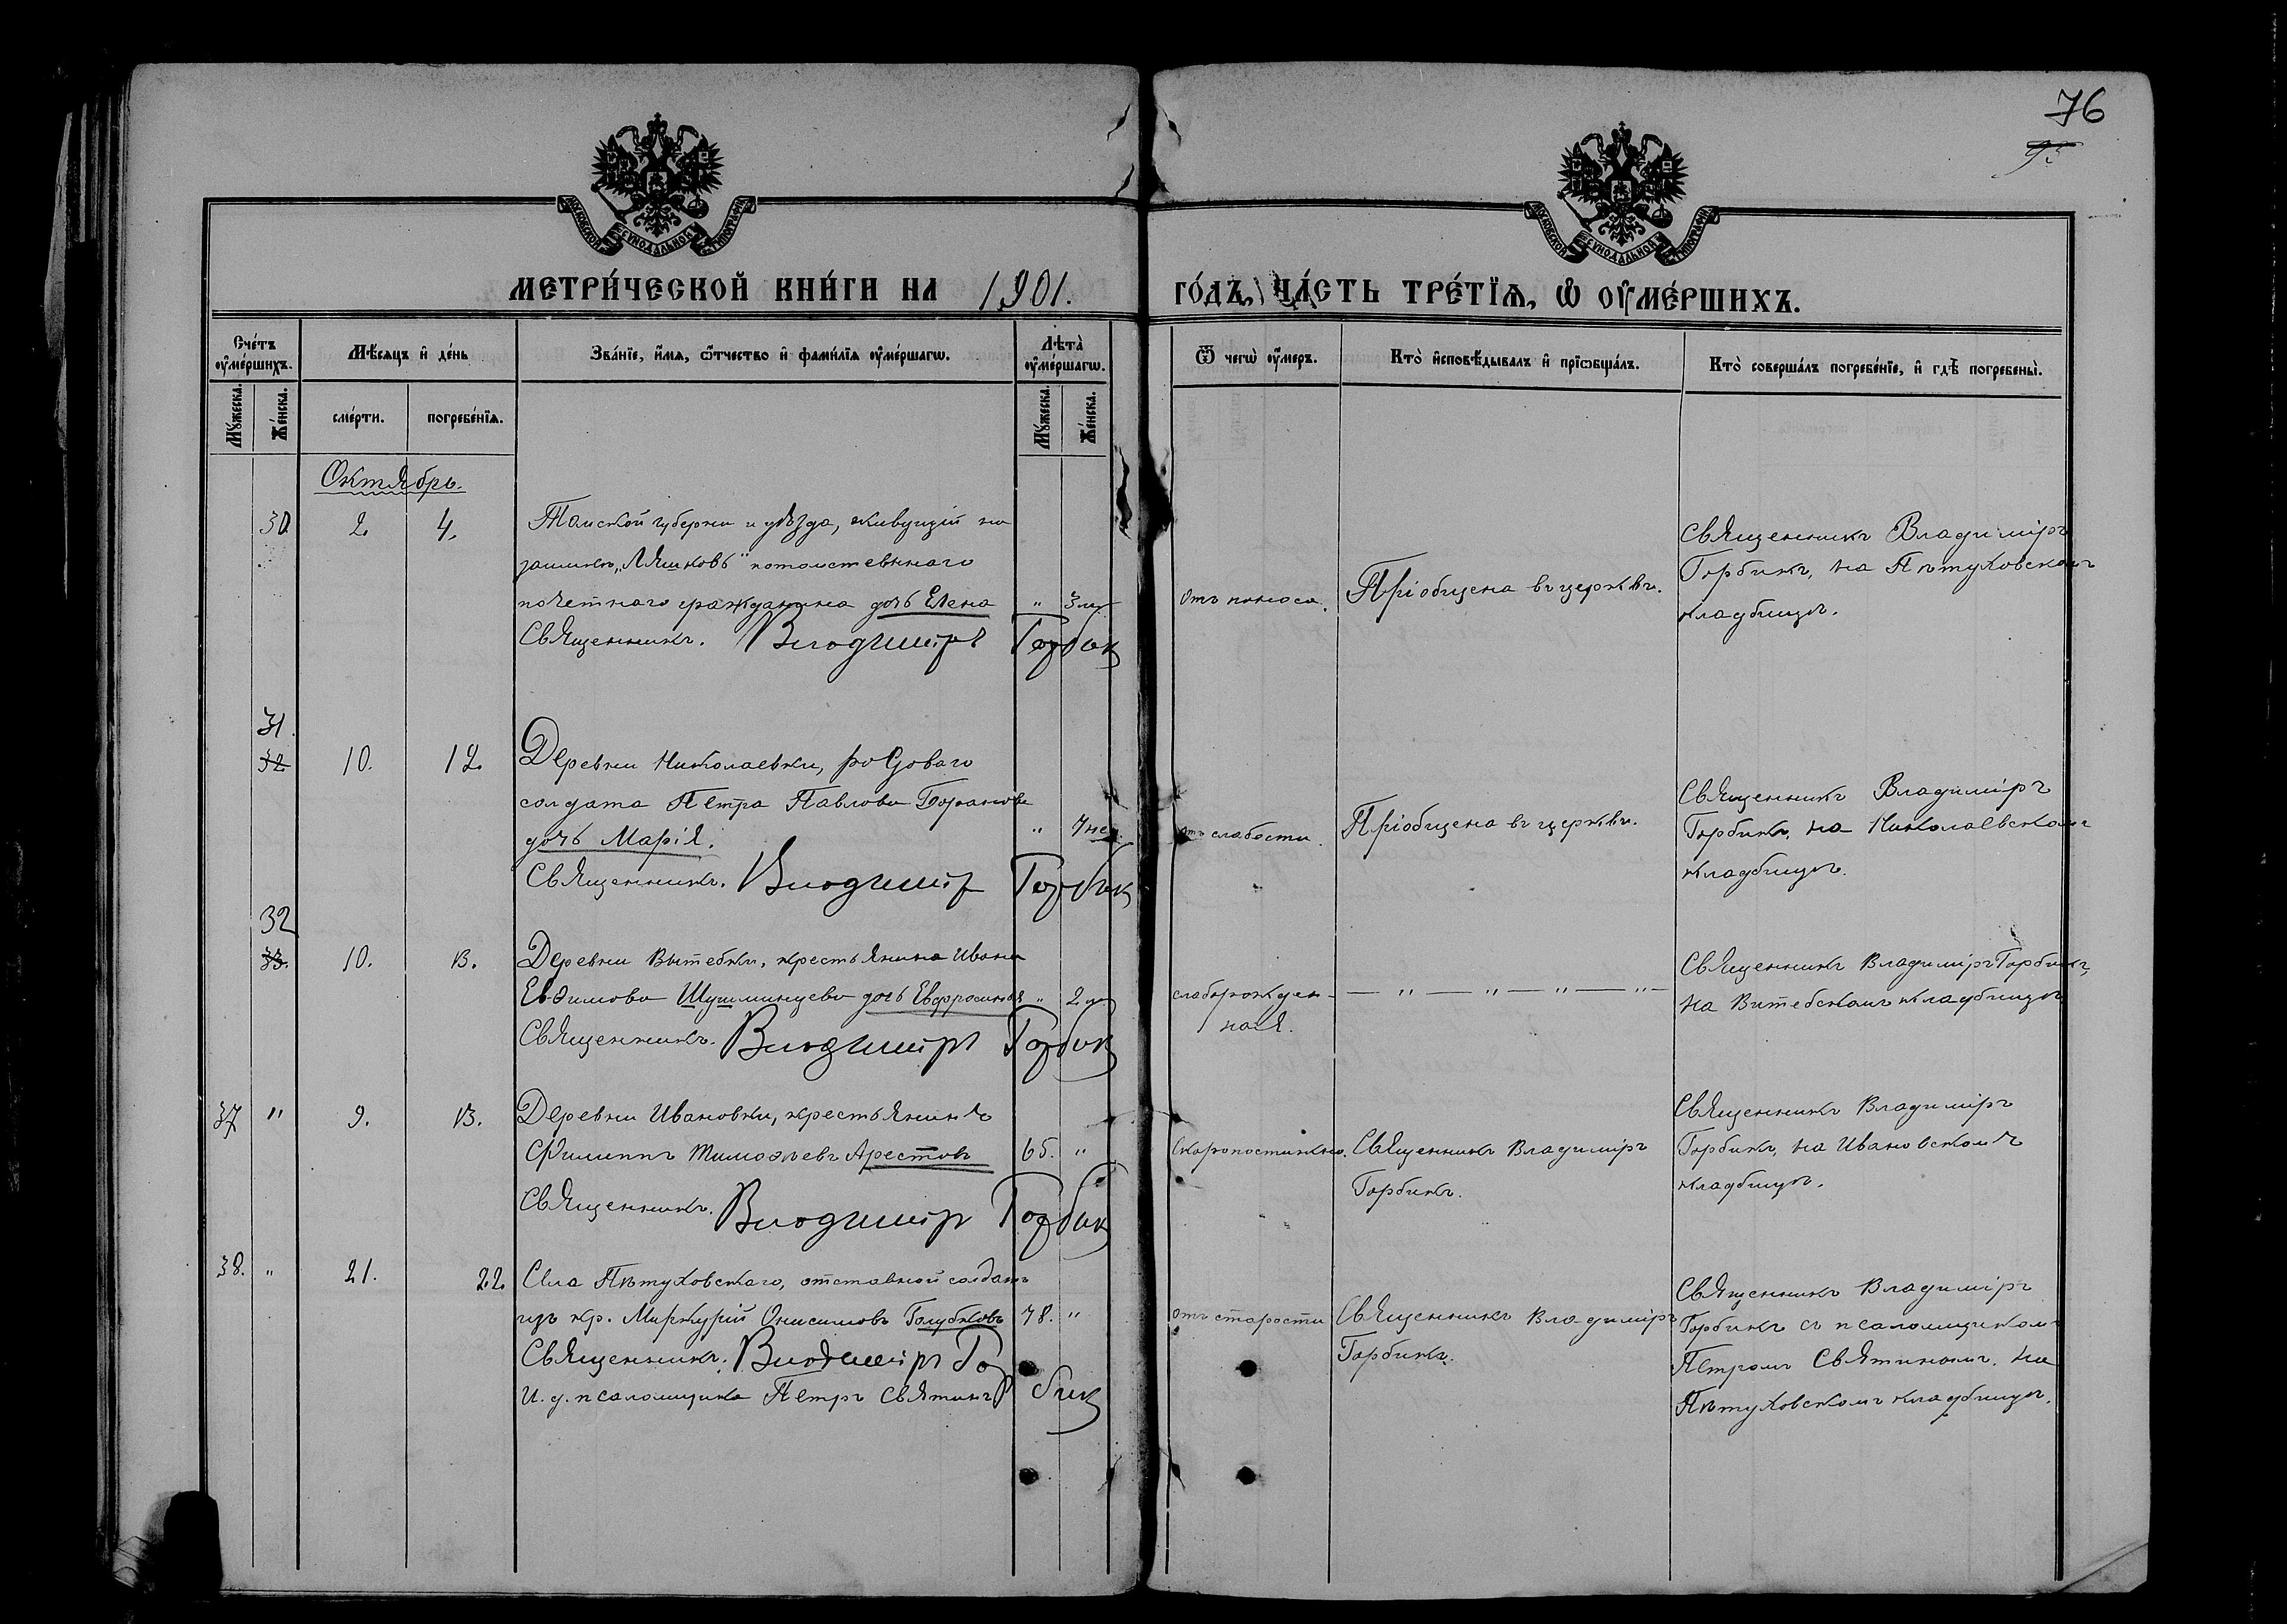 76
МОСКОВСКОЙ СѴНОДАЛЬНОЙ ТИПОГРАФІИ
МОСКОВСКОЙ СѴНОДАЛЬНОЙ ТИПОГРАФІИ
МЕТРИ́ЧЕСКОЙ КНИ́ГИ НА 1901. ГО́ДЪ, ЧА́СТЬ ТРЕ́ТЇѦ, Ѡ ОУ҆МЕ́РШИХЪ.
Сче́тъ оу҆ме́ршихъ.
Мѣ́сяцъ и҆ де́нь
Зва́нїе, и҆́мя, ѻ҆́тчество и҆ фами́лїя оу҆ме́ршагѡ.
Лѣта̀ оу҆ме́ршагѡ.
Ѿ чегѡ̀ оу҆́меръ.
Кто̀ и҆сповѣ́дывалъ и҆ прїѡбща́лъ.
Кто̀ соверша́лъ погребе́нїе, и҆ гдѣ̀ погребены̀.
Му́жеска.
Же́нска.
сме́рти.
погребе́нїя.
Му́жеска.
Же́нска.
Октябрь.
30 2. 4.
Томской губерніи и уѣзда, живущій на
заимкѣ „Ляшковъ" потомственнаго
почетнаго гражданина дочь Елена
" 3
Священникъ. Владиміръ Горбик
отъ поноса.
Пріобщена въ церкви.
Священникъ Владиміръ
Горбикъ, на Пѣтуховскомъ
кладбищѣ.
31.
32 10. 12.
Деревни Николаевки, рядоваго
солдата Петра Павлова
дочь Марія.
" 7 нед.
Священникъ. Владимір Горбик
отъ слабости.
Пріобщена въ церкви.
Священникъ Владиміръ
Горбикъ, на Николаевскомъ
кладбищѣ.
32
33. 10. 13.
Деревни Вытебки, крестьянина Ивана
Евѳимова дочь Евфросинія
" 2
Священникъ. Владиміръ Горбик
слаборожден-
ная.
— " — " — " — " —
Священникъ Владиміръ Горбикъ,
на Витебскомъ кладбищѣ
37 " 9. 13.
Деревни Ивановки, крестьянинъ
Филиппъ Тимоѳѣевъ Арестовъ
65. "
Священникъ. Владимір Горбик
Скоропостижно.
Священникъ Владиміръ
Горбикъ.
Священникъ Владиміръ
Горбикъ, на Ивановскомъ
кладбищѣ.
38. " 21. 22.
Села Пѣтуховскаго, отставной солдатъ
изъ кр. Меркурій Онисимовъ Голубковъ
78. "
Священникъ. Владиміръ Гор
бик
И. д. псаломщика Петръ Святинъ
отъ старости
Священникъ Владиміръ
Горбикъ.
Священникъ Владиміръ
Горбикъ съ псаломщикомъ
Петромъ Святинымъ. на
Пѣтуховскомъ кладбищѣ.